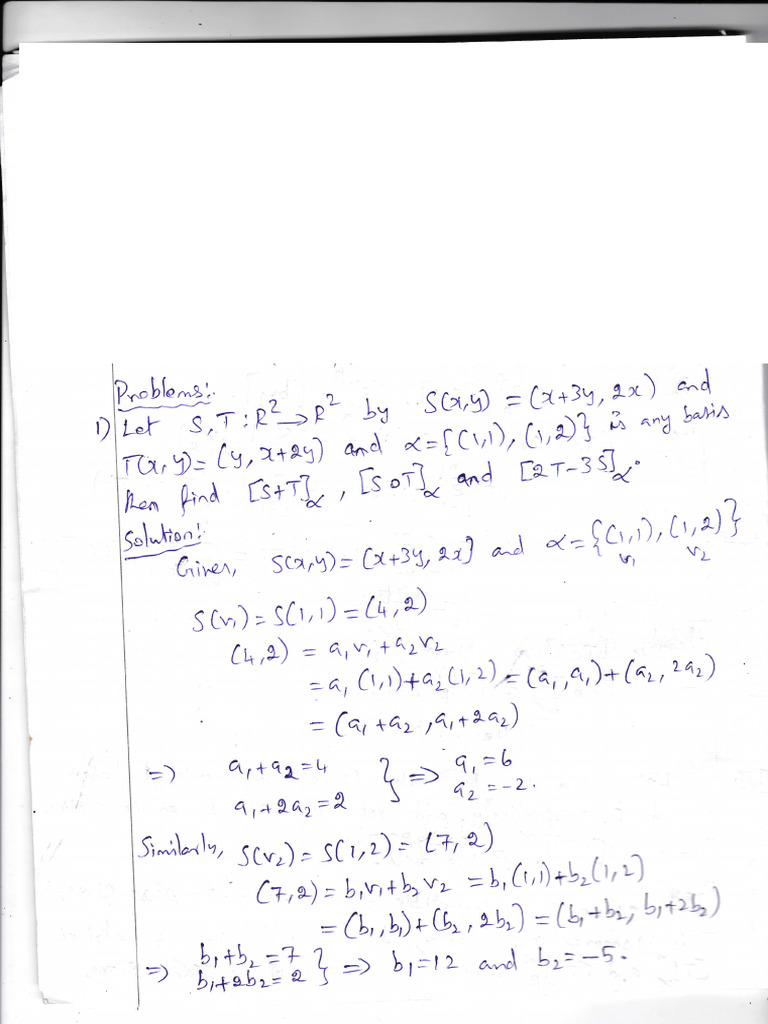 Problems:
1) Let S, T : R² → R² by S(x,y) = (x+3y, 2x) and
T(x,y) = (y, x+2y) and α = {(1,1), (1,2)} is any basis
then find [S+T]α, [S∘T]α and [2T-3S]α.
Solution:
Given, S(x,y) = (x+3y, 2x] and α = {(1,1), (1,2)}
v₁ v₂
S(v₁) = S(1,1) = (4,2)
(4,2) = a₁v₁ + a₂v₂
= a₁(1,1) + a₂(1,2) = (a₁, a₁) + (a₂, 2a₂)
= (a₁+a₂, a₁+2a₂)
=> a₁+a₂ = 4 } => a₁ = 6
a₁+2a₂ = 2 a₂ = -2.
Similarly, S(v₂) = S(1,2) = (7,2)
(7,2) = b₁v₁ + b₂v₂ = b₁(1,1) + b₂(1,2)
= (b₁, b₁) + (b₂, 2b₂) = (b₁+b₂, b₁+2b₂)
=> b₁+b₂ = 7 } => b₁ = 12 and b₂ = -5.
b₁+2b₂ = 2